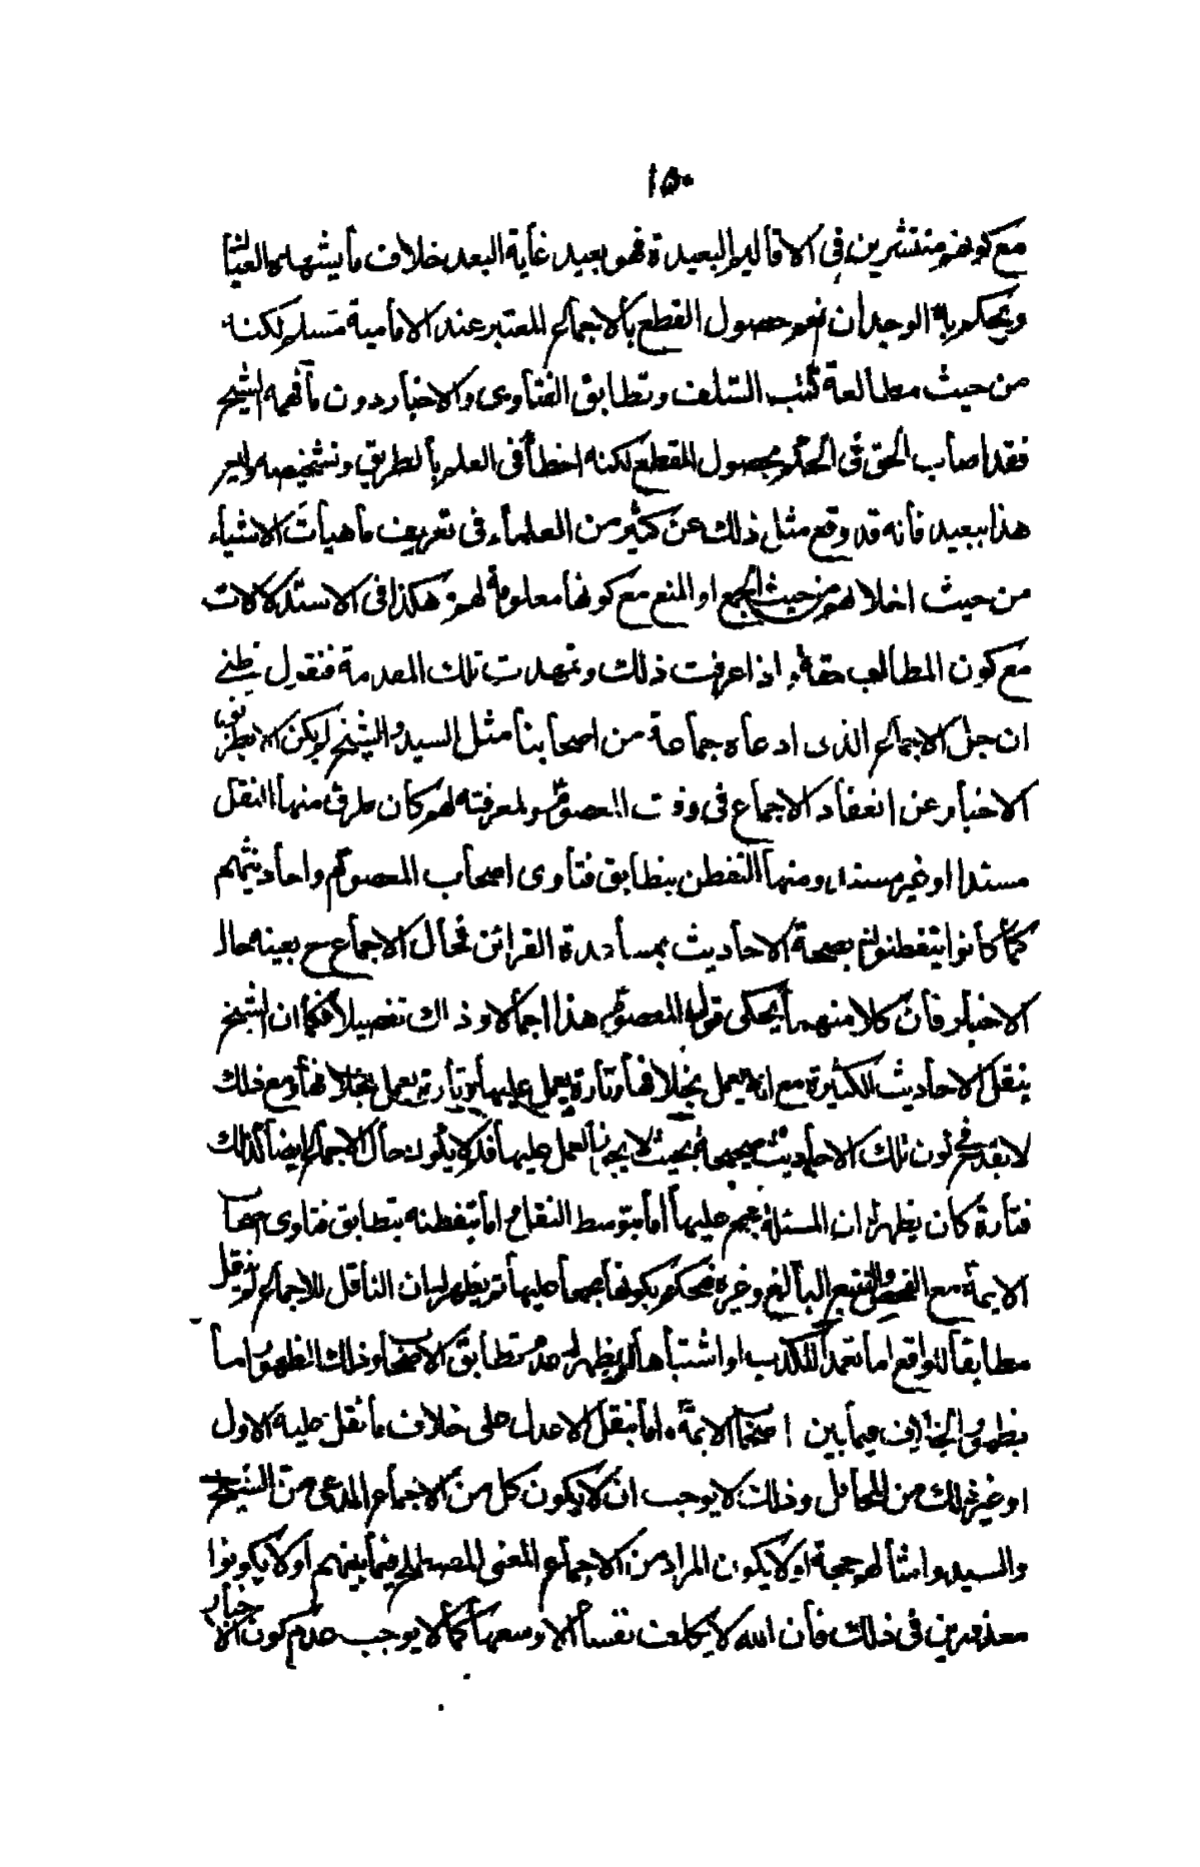 ۱۵۰
مع كونهم منتشرين فى الاقاليم البعيدة فهو بعيد غاية البعد خلاف ما يشهد به العيان
ويحكم به الوجدان نعم حصول القطع بالاجماع المعتبر عند الامامية مسلم لكنه
من حيث مطالعة كتب السلف وتطابق الفتاوى والاخبار دون ما فهمه الشيخ
فقد اصاب الحق فى الحكم بحصول القطع لكنه اخطأ فى العلم بالطريق وتشخيصه وليس
هذا ببعيد فانه قد وقع مثل ذلك عن كثير من العلماء فى تعريف ماهيات الاشياء
من حيث اخلالهم من حيث الجمع او المنع مع كونها معلومة لهم وهكذا فى الاستدلالات
مع كون المطالب حقة واذا عرفت ذلك وتمهدت تلك المقدمة فنقول يظنى
ان جل الاجماع الذى ادعاه جماعة من اصحابنا مثل السيد والشيخ لم يكن الا بطريق
الاخبار عن انعقاد الاجماع فى وقت المعصوم ولمعرفته لهم كان طرق منها النقل
مسندا او غير مسند ومنها التفطن بتطابق فتاوى اصحاب المعصوم واحاديثهم
كما كانوا يتفطنون بصحة الاحاديث بمساعدة القرائن فحال الاجماع ح بعينه حال
الاخبار فان كلا منهما يحكى قول المعصوم هذا اجمالا وذاك تفصيلا فكما ان الشيخ
ينقل الاحاديث الكثيرة مع انه يعمل بخلافها وتارة يعمل عليها وتارة يعمل بخلافها ومع ذلك
لا يقدح فى كون تلك الاحاديث صحيحة بحيث لا يجوز العمل عليها فكذا يكون حال الاجماع ايضا كذلك
فتارة كان يظهر ان المسئلة مجمع عليها اما بتوسط النقل او اما بتفطنه بتطابق فتاوى اصحاب
الايمة مع الفحص والتتبع البالغ وغيره فيحكم بكونها مجمعا عليها ثم يظهر له ان الناقل للاجماع لم ينقل
مطابقا للواقع اما تعمدا للكذب او اشتباها او يظهر له عدم تطابق الاصحاب وذلك الظهور اما
بظهور الخلاف فيما بين اصحاب الايمة واما بنقل الاعدل على خلاف ما نقل عليه الاول
او غير ذلك من المحامل وذلك لا يوجب ان لا يكون كل من الاجماع المدعى من الشيخ
والسيد وامثالهم حجة او لا يكون المراد من الاجماع المعنى المصطلح فيما بينهم او لا يكونوا
معذورين فى ذلك فان الله لا يكلف نفسا الا وسعها كما لا يوجب عدم كون الاخبار